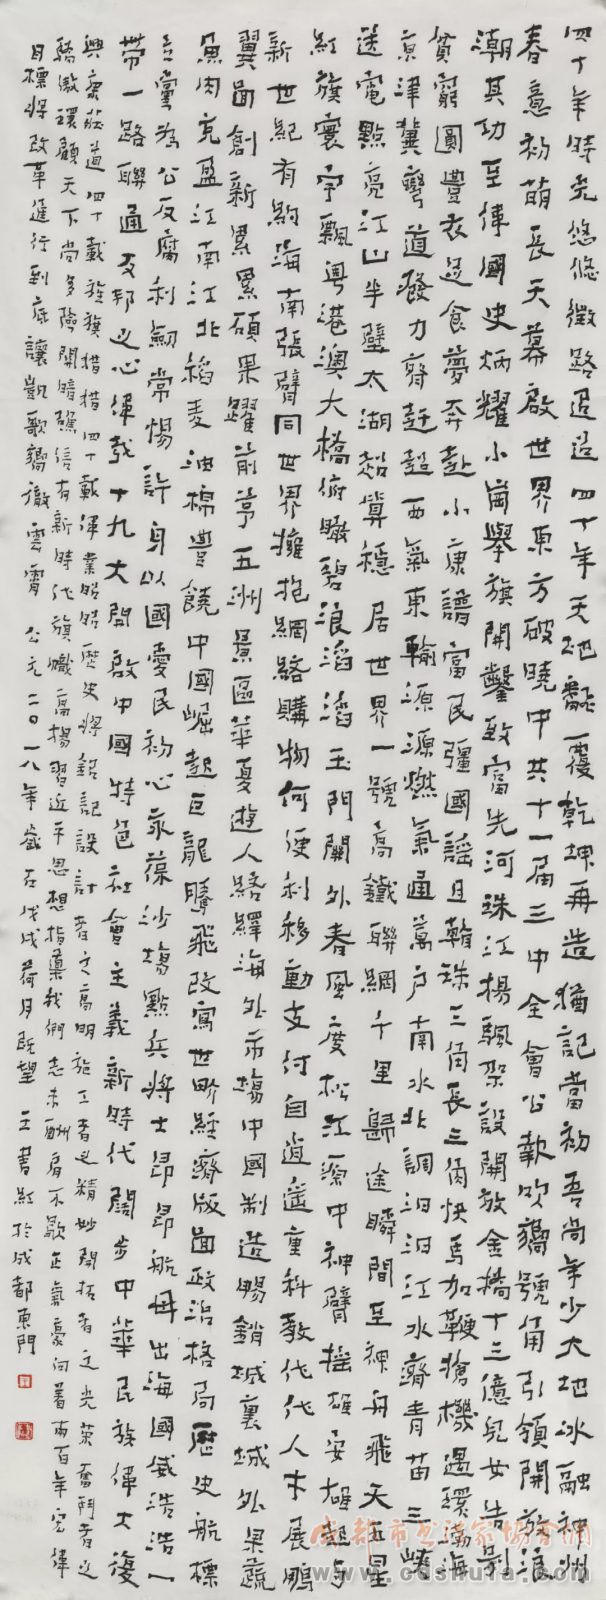 四十年時光悠悠徵路迢迢四十年天地翻覆乾坤再造猶記當初吾尚年少大地冰融神州
春意初萌長天幕啟世界東方破曉中共十一屆三中全會公報吹響號角引領開放浪
潮其功至偉國史炳耀小崗舉旗開鑿致富先河珠江揚帆架設開放金橋十三億兒女告別
貧窮圓豐衣足食夢奔赴小康譜富民彊國謠且看珠三角長三角快馬加鞭搶機遇環渤海
京津冀彎道發力齊赶超西氣東輸源源燃氣通萬戶南水北調汩汩江水濟青苗三峽
送電點亮江山半壁太湖超算穩居世界一號高鐵聯網千里歸途瞬間至神舟飛天五星
紅旗寰宇飄粵港澳大橋俯瞰碧浪滔滔玉門關外春風度松江源中神臂搖雄安崛起与
新世紀有約海南張臂同世界擁抱網絡購物何便利移動支付自逍遥重科教代代人才展鵬
翼圖創新累累碩果躍前茅五洲景區華夏遊人絡繹海外市場中國制造暢銷城裏城外果蔬
魚肉充盈江南江北稻麦油棉豊饒中國崛起巨龍騰飛改寫世界經濟版圖政治格局歷史航標
立黨為公反腐利劍常惕許身以國愛民初心永葆沙場點兵將士昂昂航母出海國威浩浩一
帶一路聯通友邦之心偉哉十九大開啟中國特色社會主義新時代闊步中華民族偉大復
興康莊道四十載旌旗揩揩四十載偉業昭昭歷史將銘記設計者之高明施工者之精妙開拓者之光榮奮鬥者之
驕傲環顧天下尚多險關暗礁信有新時代旗幟高揚習近平思想指彙我們志未酬肩不歇正氣豪向着兩百年宏偉
目標將改革進行到底讓凱歌響徹雲霄 公元二〇一八年歲在戊戌荷月既望 王書紅於成都東門
成都市书法家协会网
www.cdshufa.com